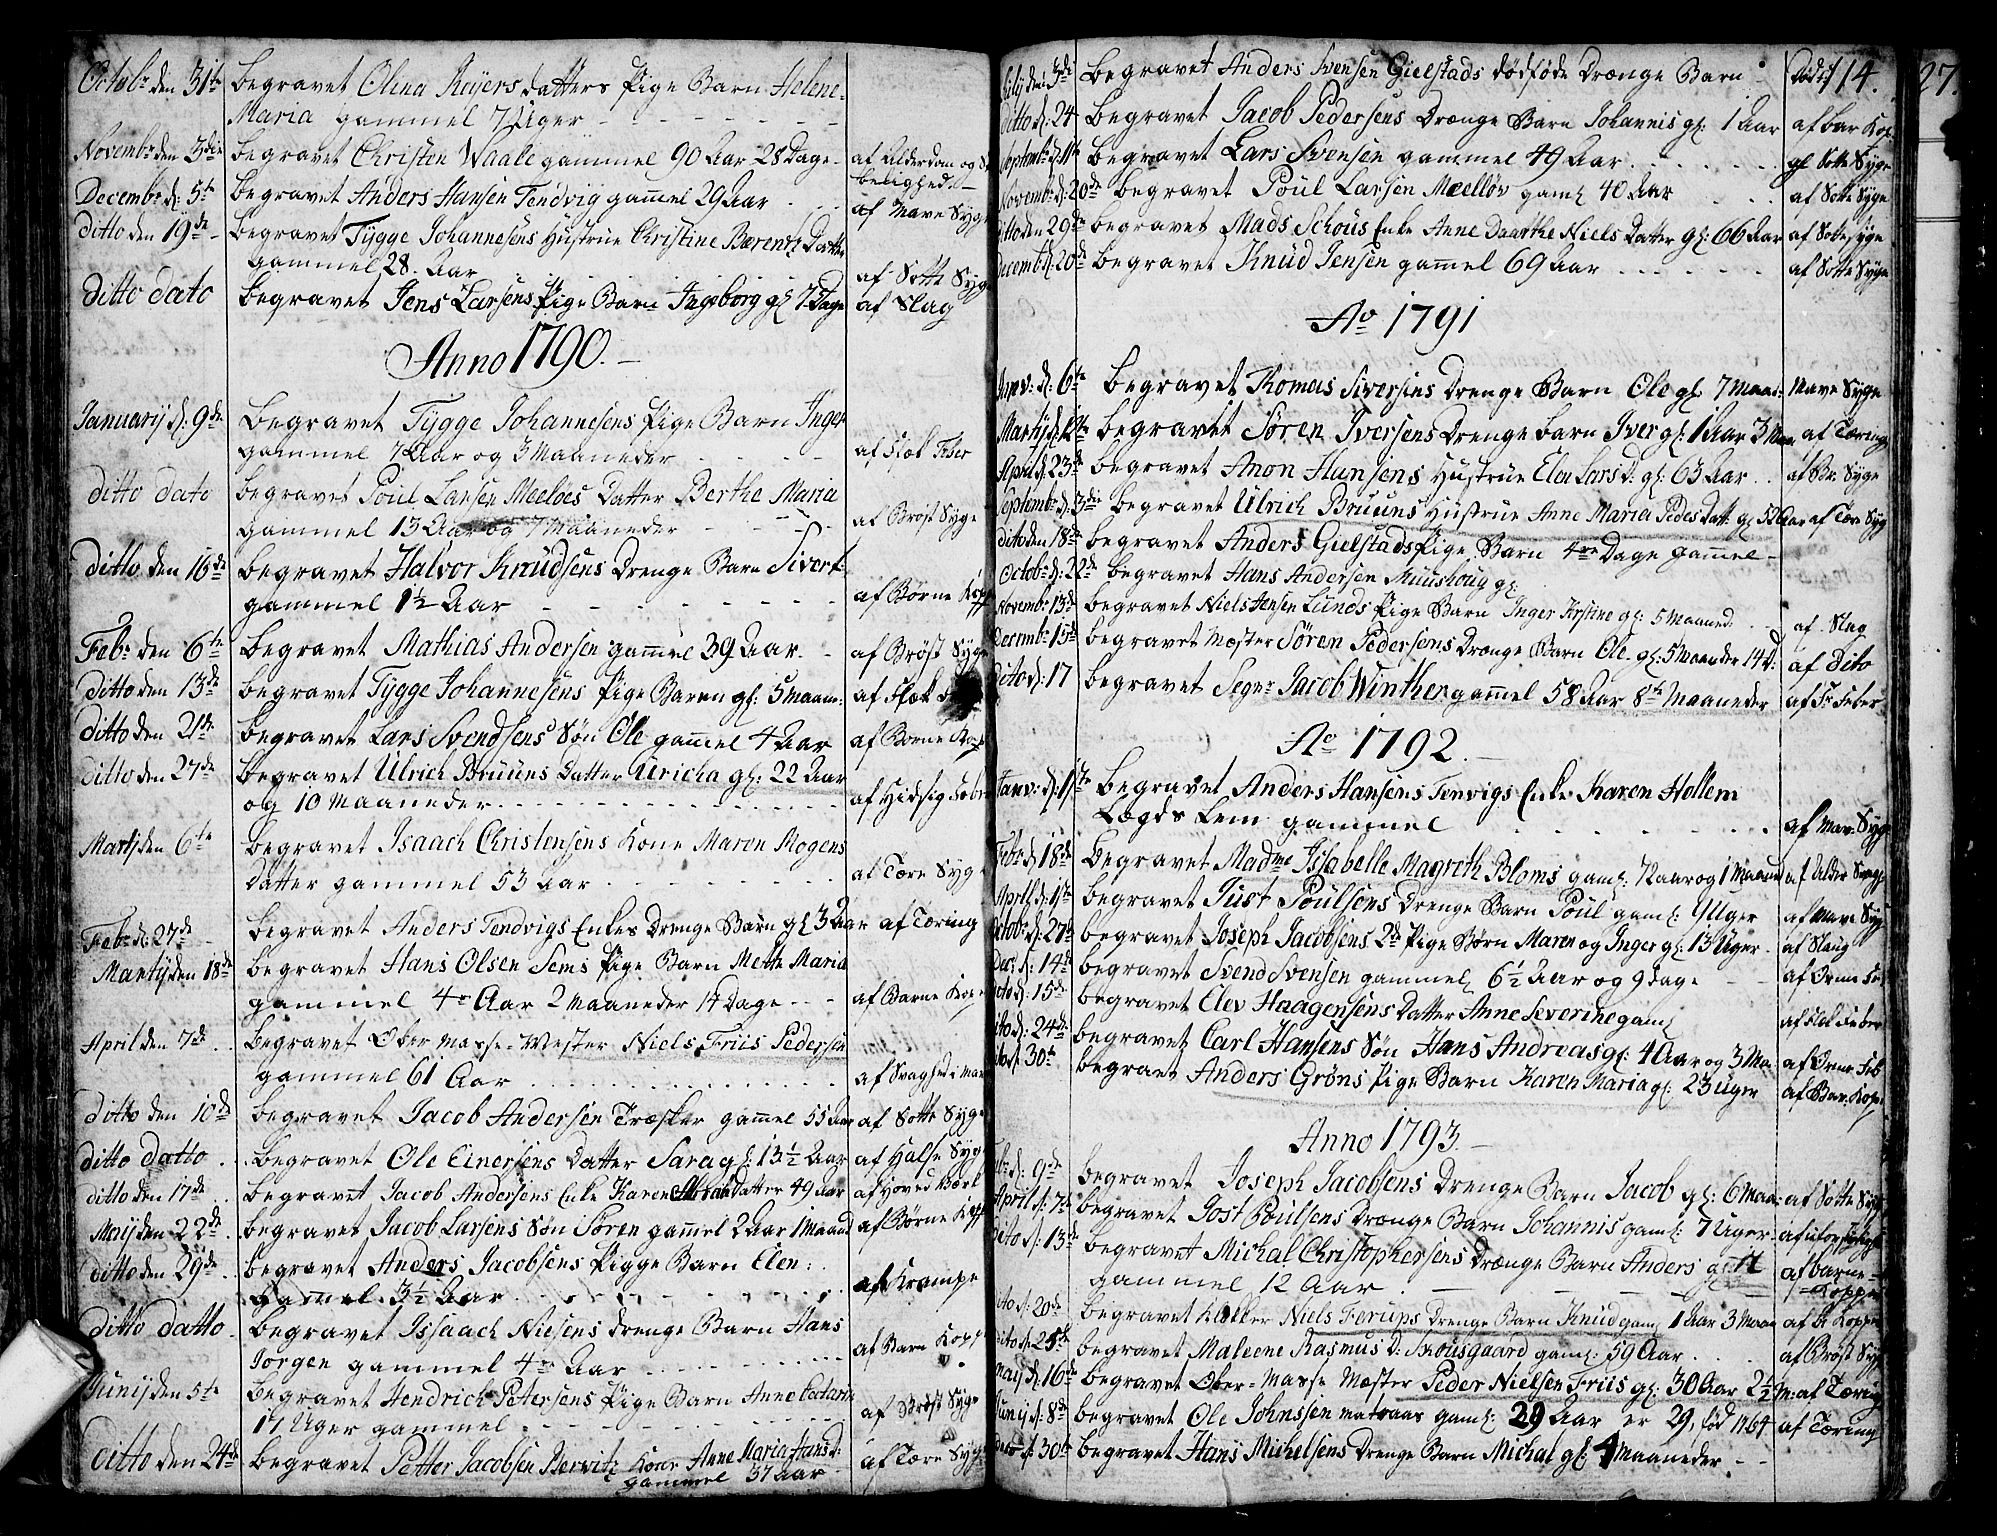 Octobr den 31te begravet Olina Reyers datters Pige Barn Helene
Maria gammel 7 Uger
Novembr den 3die begravet Christen Waale gammel 90 Aar 28 Dage af Alderdom og
belighed.
Decembr d: 5te begravet Anders Hansen Tendvig gam̄el 29 Aar af Mave Syge
ditto den 19de begravet Tygge Johannesens Hustrue Christine Bærents Datter
gammel 28. Aar af Sotte Syge
ditto dato begravet Jens Larsens Pige Barn Ingeborg gl 7 Dage af Slag
Anno 1790.
Januarij d: 9de Begravet Tygge Johannesens Pige Barn Inger
gammel 7 Aar og 3 Maaneder af Flæk Feber
ditto dato begravet Poul Larsen Meeloes Datter Berthe Maria
gammel 13 Aar og 7 Maaneder af Bröst Syge
ditto den 16de begravet Halvor Knudsens Drenge Barn Sivert
gammel 1½ Aar af Börne Kopp
Febr den 6te begravet Mathias Andersen gam̄el 39 Aar af Bröst Syge
ditto den 13de begravet Tygge Johannesens Pige Baren gl: 5 Maane: af Flæk
ditto den 21de begravet Lars Svendsens Sön Ole gam̄el 4 Aar af Borne Kop
ditto den 27de begravet Ulrich Bruuns Datter Uricha gl: 22 Aar
og 10 Maaneder af Hidsig Feber
Martj den 6te begravet Isaach Christensens Kone Maren Mogens
Datter gammel 53 Aar af Tære Syge
Febr d: 27de begravet Anders Tendvigs Enkes Drenge Barn gl 3 Aar af Tæring
Martij den 18de begravet Hans Olsen Sems Pige Barn Mette Maria
gammel 4re Aar 2 Maaneder 14 Dage af Barne Kop
April den 7de begravet Ober Masse-Mester Niels Friis Pedersen
gammel 61 Aar af Svaghed i Mav
ditto den 10de begravet Jacob Andersen Træsker gam̄el 55 Aar af Sotte Syge
ditto datto begravet Ole Einersens Datter Sara gl: 13½ Aar af Halse Syge
ditto den 17de begravet Jacob Andersens Enke Karen datter 49 Aar af Hoved Værk
Maij den 22de begravet Jacob Larsens Sön Sören gam̄el 2 Aar 1 Maaned af Börne Kopp
ditto den 29de begravet Anders Jacobsens Pigge Barn Elen
gam̄el 3½ Aar af Krampe
ditto datto begravet Issaach Nielsens drenge Barn Hans
Jorgen gammel 4re Aar af Barn Kopp
Junij den 5te begravet Hendrich Petersens Pige Barn Anne Catarin
17 Uger gammel af Bröst Syge
ditto den 24de begravet Petter Jacobsen Bervitz Kone Anne Maria Hansd:
gammel 37 Aar af Tære Syge
114. 27.
Julij den 3de begravet Anders Svensen Gielstads dödföde Drænge Barn
ditto d: 24 begravet Jacob Pedersens Drænge Barn Johannis gl: 1 Aar af bar Kop
Septembr d: 11te begravet Lars Svensen gammel 49 Aar af Sotte Syge
Novembr d: 20de begravet Poul Larsen Meelöv gaml 40 Aar af Sotte Syge
ditto den 29de begravet Mads Schous Enke Anne Daarthe Niels Datter gl: 66 Aar af Sotte Syge
Decemb d: 20de begravet Knud Jensen gam̄el 69 aar af Sotte Syge
Ao 1791
Janv: d: 6te begravet Thomas Siversens Drenge Barn Ole gl 7 Maad: Mave Syge
Martij d: 12te begravet Sören Iversens Drenge barn Iver gl: 1 Aar 3 Maa af Tæring
April d: 23de begravet Anon Hansens Hustrue Elen Lars d: gl: 63 Aar af Br. Syge
Septembr d: 3die begravet Ulrich Bruuns Hustrue Anne Maria Peders Datt: gl 52 Aar af Tære Syg
dito den 18de begravet Anders Gielstads Pige Barn 4re Dage gam̄el
Octobr d: 22de begravet Hans Andersen Muushoug gl:
Novembr 13de begravet Niels Jensen Lunds Pige Barn Inger Kirstine gl: 5 Maaned: af Slag
Decembr 15d begravet Mester Sören Pedersens Drænge Barn Ole gl: 5 Maander 14 d: af Dito
dito d: 17 begravet Segnr Jacob Winther gam̄el 58 Aar 8te Maaneder af Fr Feber
Ao 1792
Janv: d: 1ste begravet Anders Hansens Tenvigs Enke Karen Hollem
Lægds Lem gammel af Mav: Syg
Febr d: 18de begravet Madme Issabelle Magreth Bloms gaml: 72 aar og 1 Maaned af Alder Svag:
April d: 1ste begravet Just Poulsens Drenge Barn Poul gaml: 4 Uger af Mave Syg
Octobr d: 27de begravet Joseph Jacobsens 2de Pige Børn Maren og Inger gl: 13 Uger af Slaug
Decr d: 14de begravet Svend Svensen gammel 6½ Aar og 9 Dage af Orm Fe
dito d: 15de begravet Elev Haagensens Datter Anne Severine gaml af Flek Feber
dito d: 24de begravet Carl Hansens Sön Hans Andreas gl: 4 Aar og 3 Ma af Orme Feb
dito d: 30te begravet Anders Gröns Pige Barn Karen Maria gl: 23 Uger af Bar: Kop
Anno 1793
d: 9de begravet Joseph Jacobsens Drenge Barn Jacob gl: 6 Maa: af Sotte Syg
April d: 7de begravet Jost Poulsens Drænge Barn Johannis gaml: 7 Uger
dito d: 13de begravet Michal Christophersens Drænge Barn Anders gl: 12
gammel 12 Aar af Barne Kopper
dito d: 20de begravet Klokker Niels Ferups Drenge Barn Knud gaml 1 Aar 3 Maan af B Kopper
dito d: 25de begravet Maleene Rasmus D: Skousgaard gaml: 59 Aar af Bröst Syg
Maij d: 16de begravet Ober-Masse Mæster Peder Nielsen Friis gl: 30 Aar 2½ M: af Tæring
Junij d: 8de begravet Ole Johnssen Matroas gaml: 29 Aar er 29, föd 1764 af Tæring
dito d: 30te begravet Hans Michelsens Drenge Barn Michal gl: 4 Maaneder